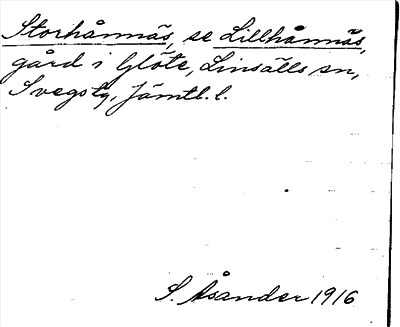 Storhånnäs, se Lillhånnäs,
gård i Glöte, Linsälls sn,
Svegs tg, Jämtl. l.
S. Åsander 1916